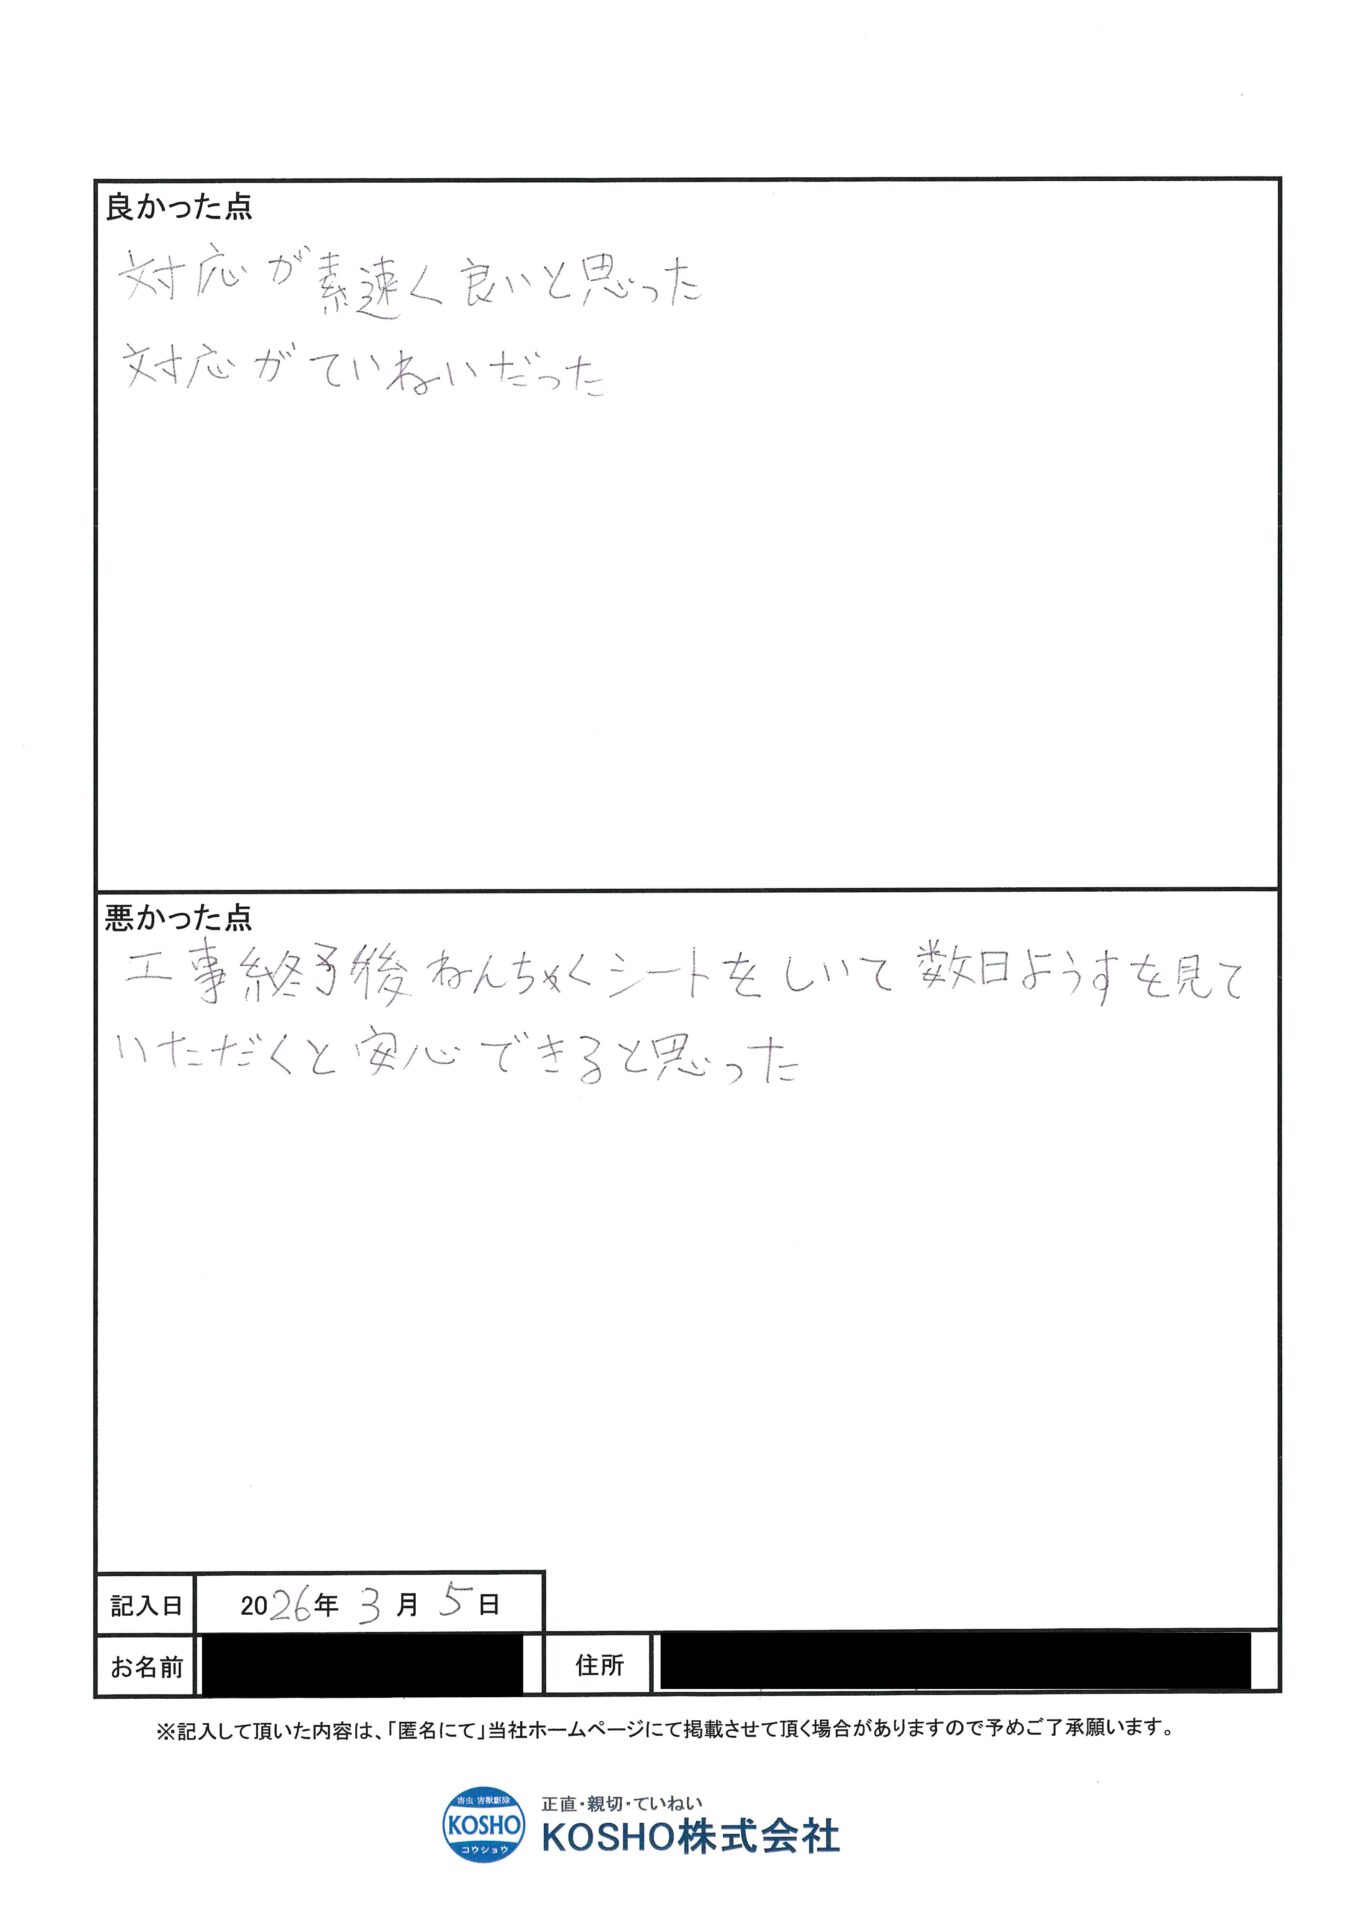 良かった点
対応が素速く良いと思った
対応がていねいだった
悪かった点
工事終予後ねんちゃくシートをしいて数日ようすを見て
いただくと安心できると思った
記入日 2026年 3月 5日
お名前 住所
※記入して頂いた内容は、「匿名にて」当社ホームページにて掲載させて頂く場合がありますので予めご了承願います。
害虫 害獣駆除
KOSHO
コウショウ
正直・親切・ていねい
KOSHO株式会社